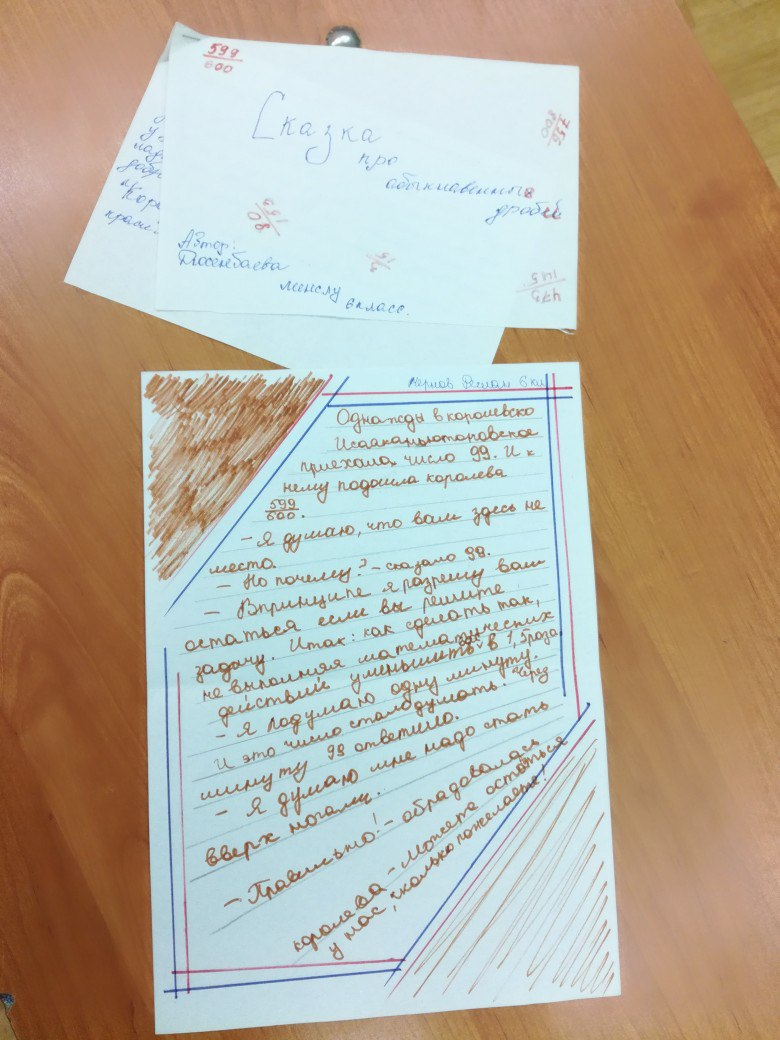 599
600
Сказка
про
обыкнавенных
дробей
756
800
80
153
Автор:
Тюсенбаева
Минслу
6 класс.
3
15
473
у
лад
добр
Кор
краси
6 кл
Однажды в королевско
Исааканьютоновское
приехала число 99. И к
нему подошла королева
599
600.
- Я думаю, что вам здесь не
место.
- Но почему? - сказало 99.
- Впринципе я разрешу вам
остаться если вы решите
задачу. Итак: как сделать так,
не выполняя математических
действий уменьшить в 1,5 раза
- Я подумаю одну минуту.
И это число стало думать. Через
минуту 99 ответило.
- Я думаю мне надо стать
вверх ногами.
- Правильно! - обрадовалась
королева - Можете остаться
у нас, сколько пожелаете!